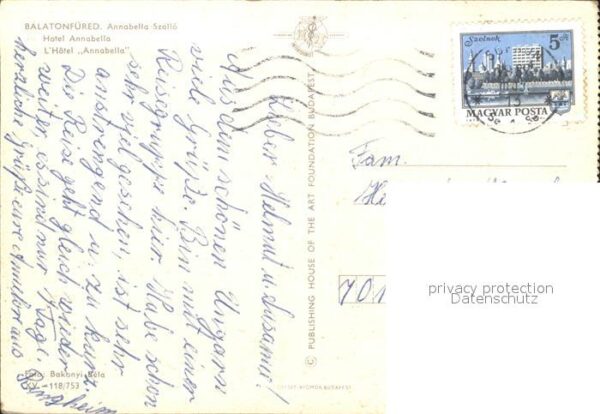 BALATONFÜRED. Annabella Szálló
Hotel Annabella
L'Hôtel „Annabella"
Szolnok
5 Ft
MAGYAR POSTA
Lieber Helmut u. Susanne!
Aus dem schönen Ungarn
viele Grüße. Bin mit einer
Reisegruppe hier. Habe schon
sehr viel gesehen, ist sehr
anstrengend u. zu kurz.
Die Reise geht gleich wieder
weiter, es sind nur 7 Tage.
herzliche Grüße eure aus
Fam.
He
701
© PUBLISHING HOUSE OF THE ART FOUNDATION BUDAPEST
Foto: Bakonyi Béla
KV - 118/753
OFFSET-NYOMDA BUDAPEST
privacy protection
Datenschutz